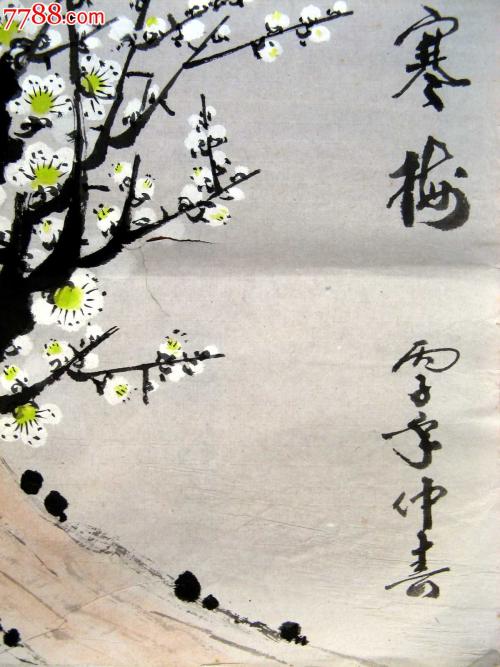 7788.com
寒梅
丙子年仲春